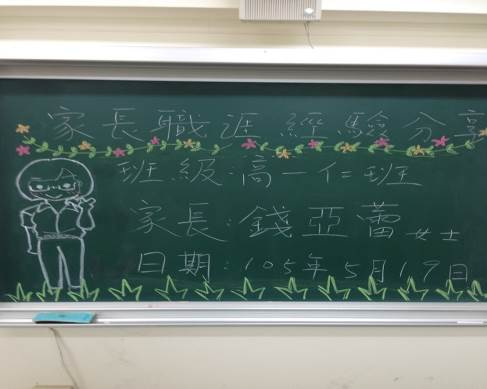 家長職涯經驗分享
班級:高一仁班
家長:錢亞蕾女士
日期:105年5月19日